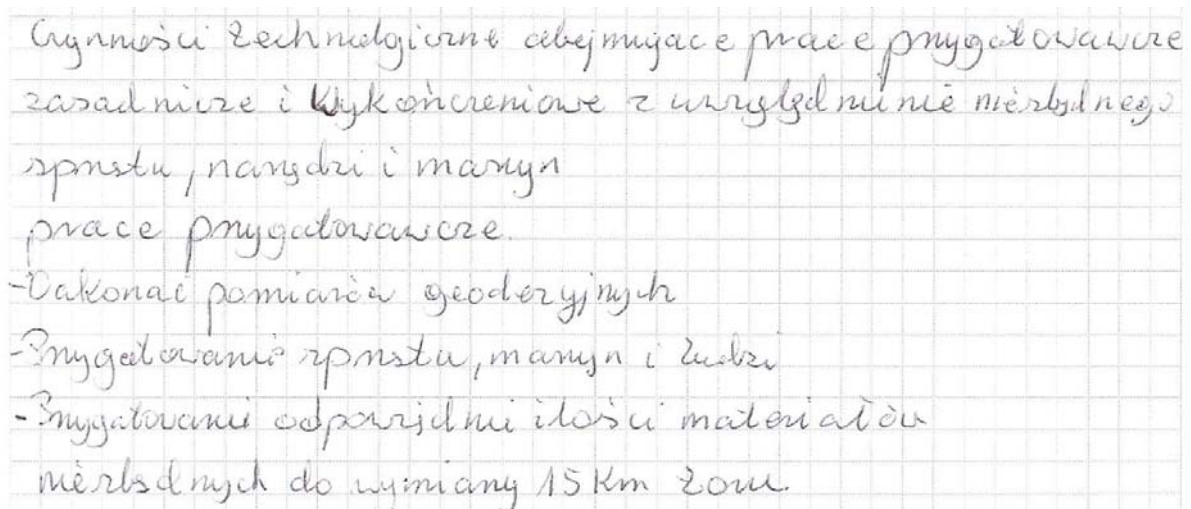 Czynności technologiczne obejmujące prace przygotowawcze
zasadnicze i wykończeniowe z uwzględnienie niezbędnego
sprzętu, narzędzi i maszyn
prace przygotowawcze.
-Dokonać pomiarów geodezyjnych
-Przygotowanie sprzętu, maszyn i ludzi
-Przygotowanie odpowiedni ilości materiałów
niezbędnych do wymiany 15 Km toru.